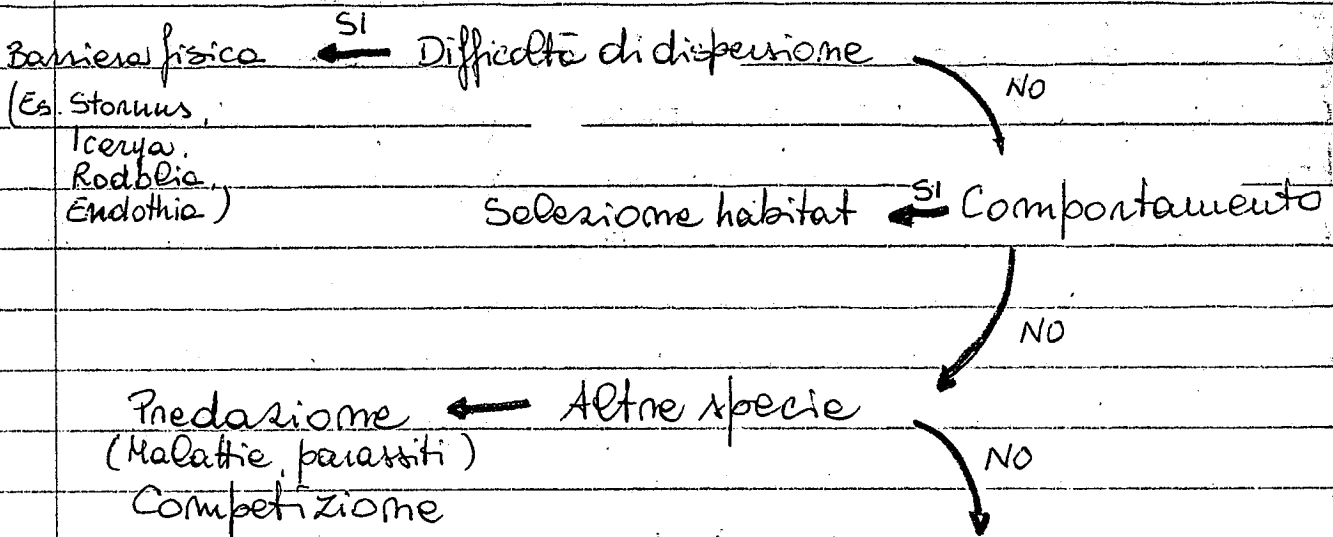 SI
Barriera fisica ← Difficoltà di dispersione
NO
(Es. Stornus,
Icerya,
Rodolia,
Endothia)
Selezione habitat ← SI Comportamento
NO
Predazione ← Altre specie
(Malattie, parassiti)
NO
Competizione